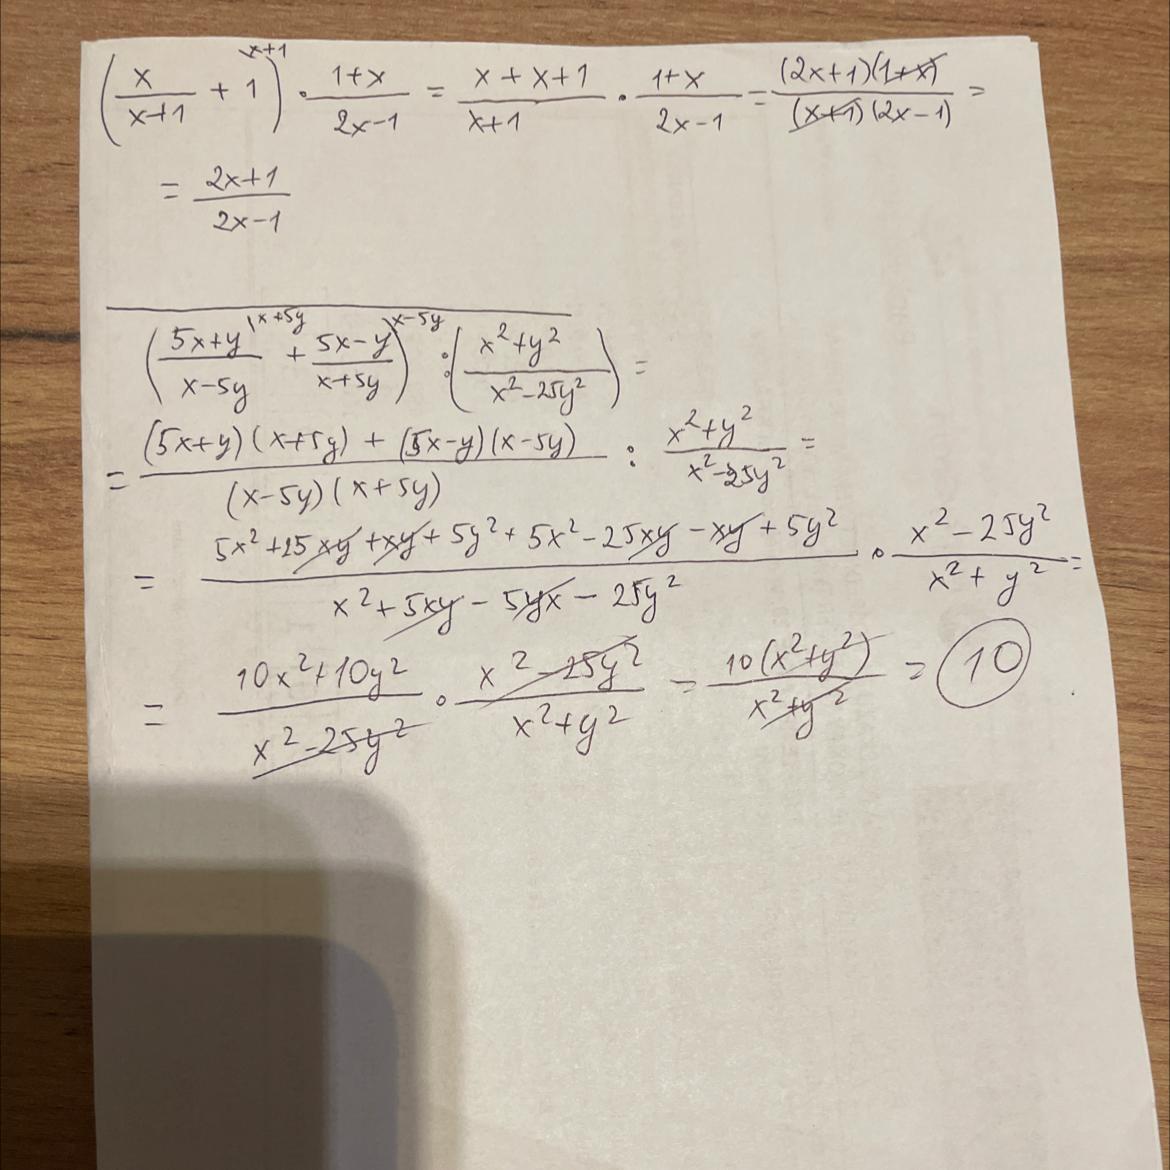 (x/(x+1) + 1^{\x+1}) · (1+x)/(2x-1) = (x+x+1)/(x+1) · (1+x)/(2x-1) = ((2x+1)(1+x))/((x+1)(2x-1)) =
= (2x+1)/(2x-1)
((5x+y)/(x-5y)^{\x+5y} + (5x-y)/(x+5y)^{\x-5y}) : ((x²+y²)/(x²-25y²)) =
= ((5x+y)(x+5y) + (5x-y)(x-5y))/((x-5y)(x+5y)) : (x²+y²)/(x²-25y²) =
= (5x²+25xy+xy+5y²+5x²-25xy-xy+5y²)/(x²+5xy-5yx-25y²) · (x²-25y²)/(x²+y²) =
= (10x²+10y²)/(x²-25y²) · (x²-25y²)/(x²+y²) = (10(x²+y²))/(x²+y²) = 10